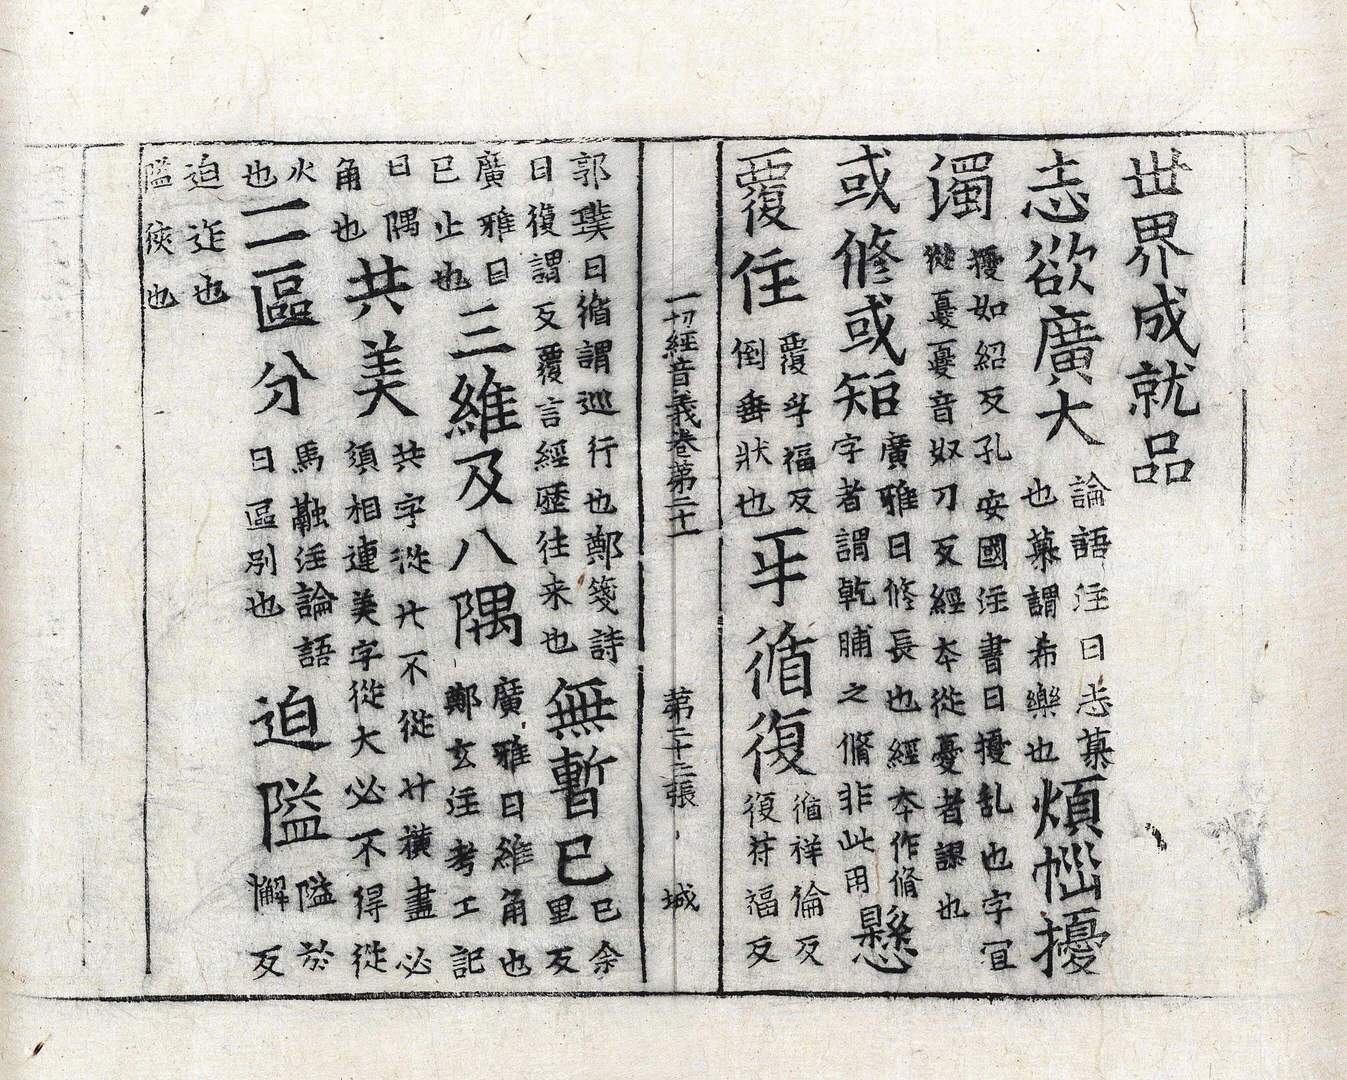 世界成就品
志欲廣大論語注曰志慕也慕謂希樂也煩惱擾
濁擾如紹反孔安國注書曰擾乱也字冝從憂憂音奴刀反經本從憂者謬也
或脩或短廣雅曰脩長也經本作脩字者謂乹脯之脩非此用懸
覆住覆孚福反倒垂狀也平循復循祥倫反復符福反
一切經音義卷第二十一 第二十三張 城
郭璞曰循謂巡行也鄭箋詩曰復謂反覆言經歷往来也無暫已已余里反
廣雅曰已止也三維及八隅廣雅曰維角也鄭玄注考工記
曰隅角也共美共字從廾不從廿橫畫必須相連美字從大必不得從
火也二區分馬融注論語曰區別也迫隘隘於懈反
迫迮也隘狹也